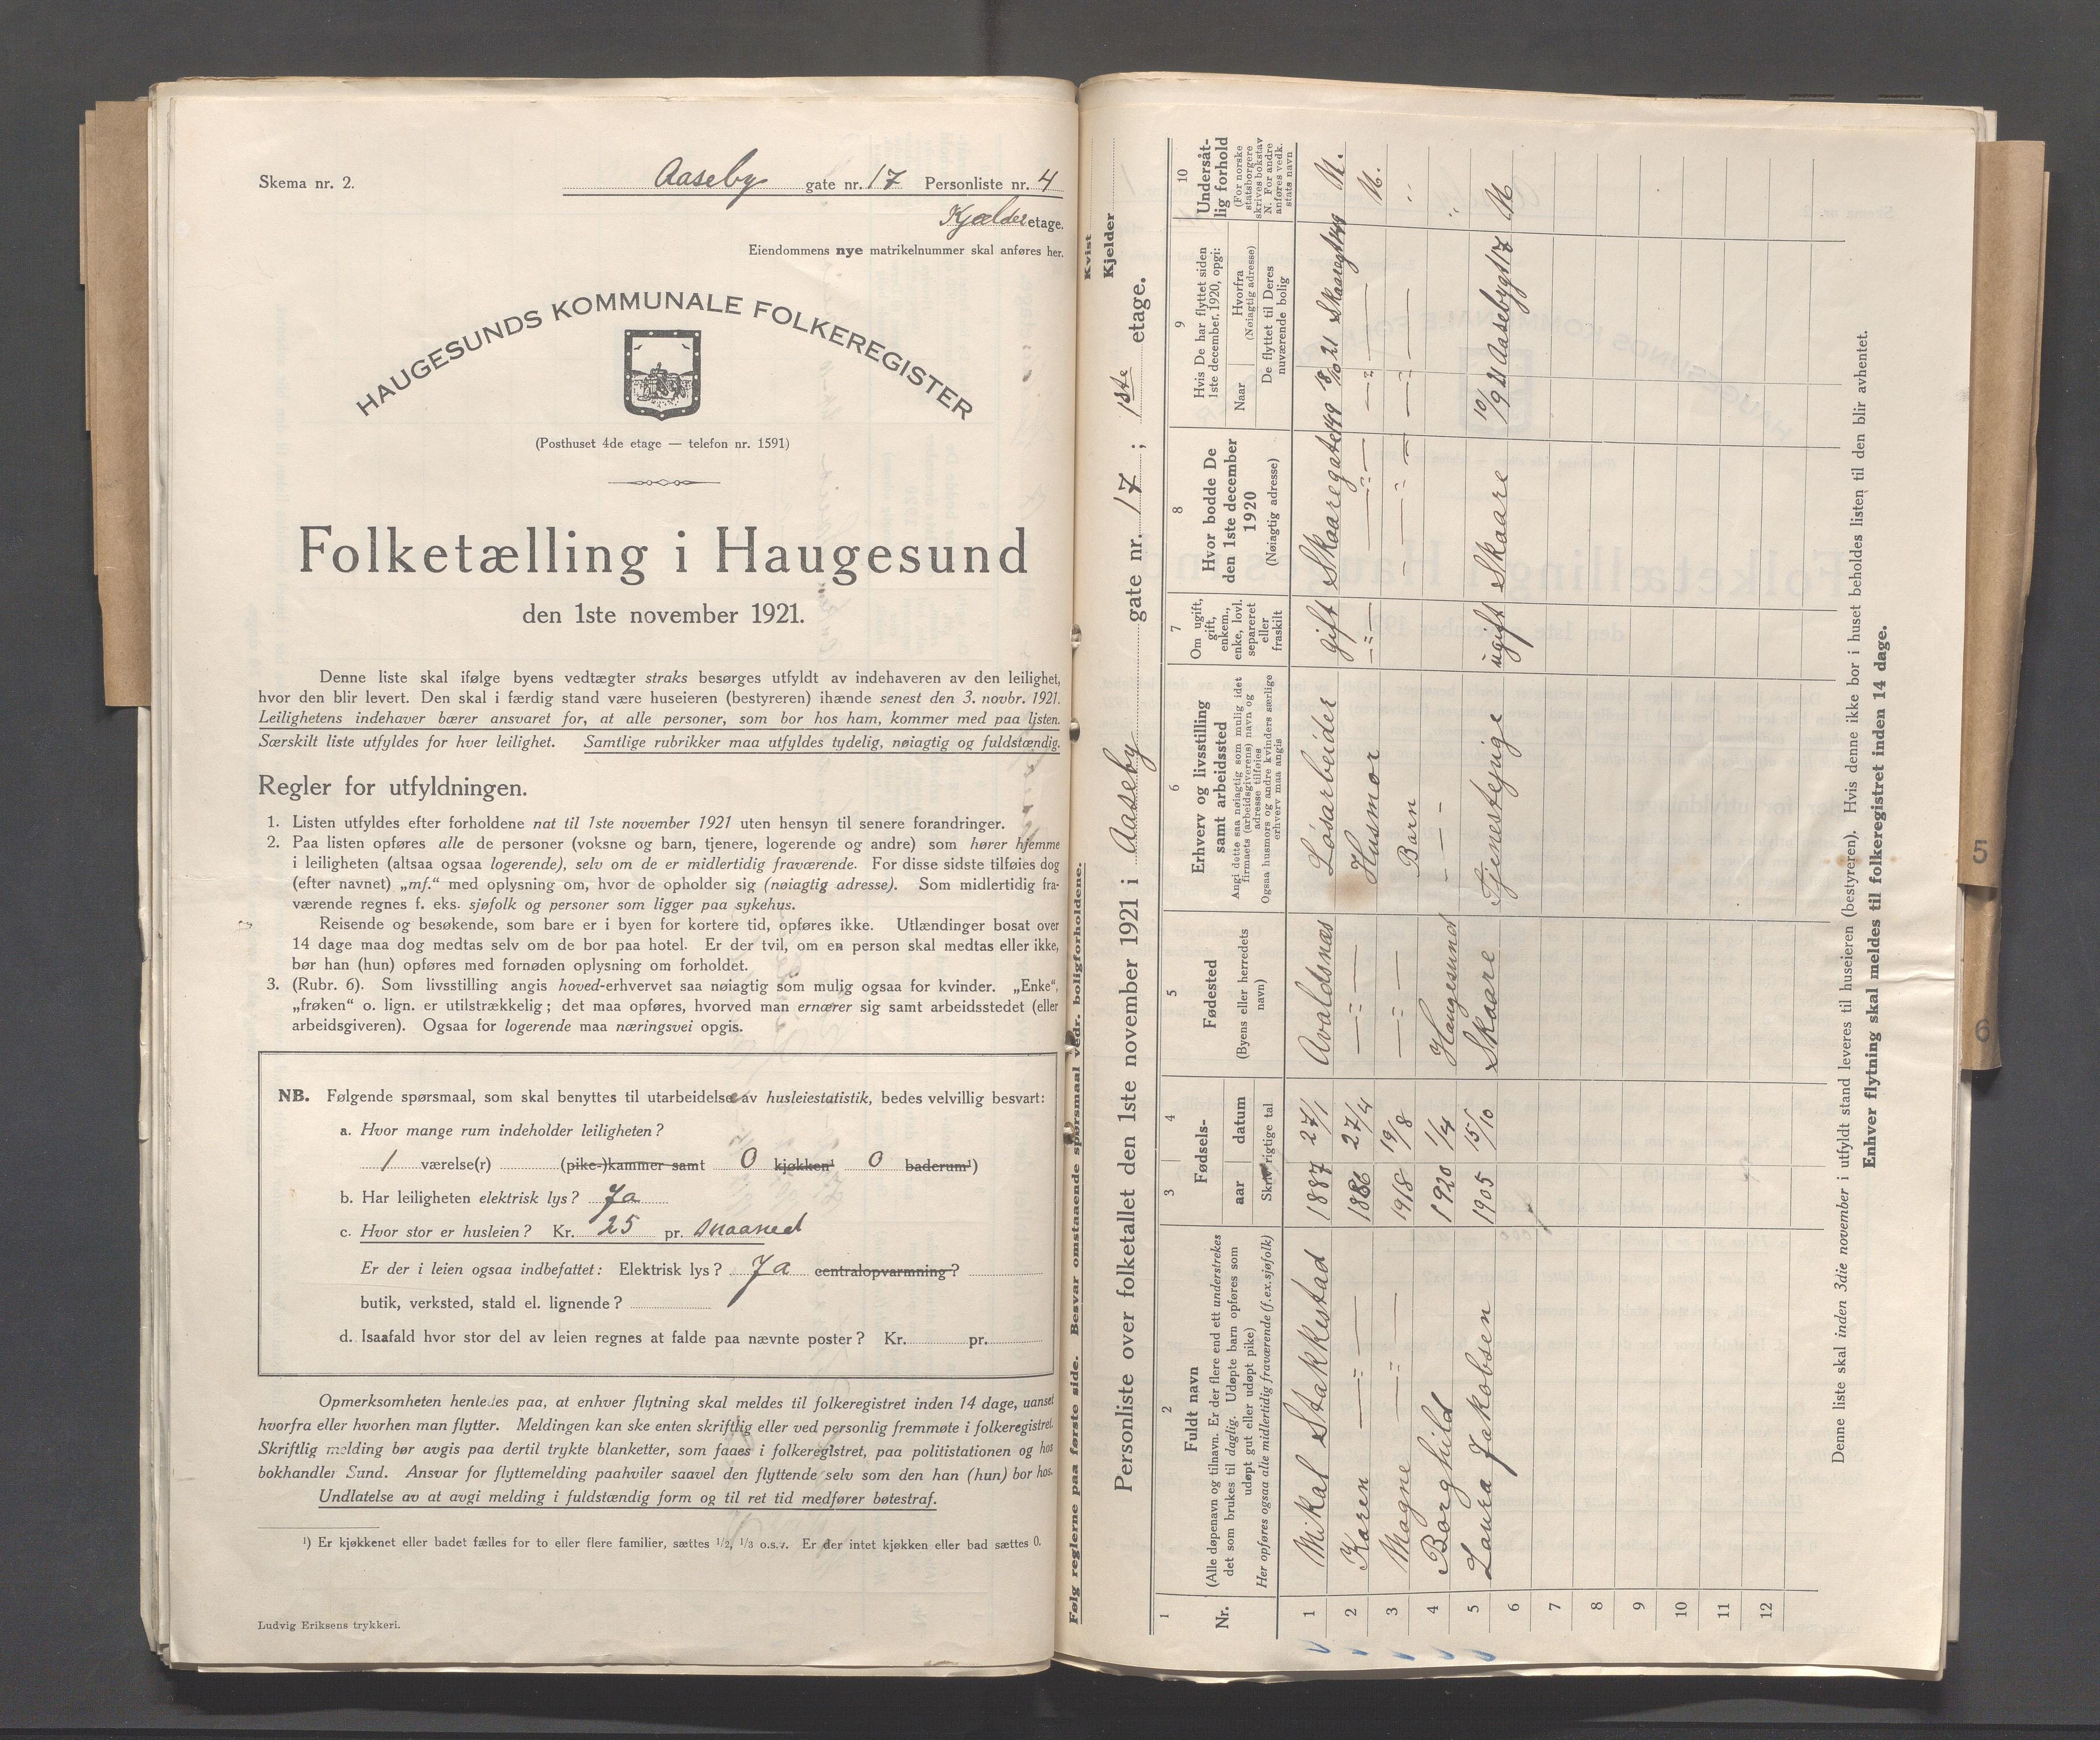 Skema nr. 2.
Aaseby gate nr. 17 Personliste nr. 4
Kjælder etage.
Eiendommens nye matrikelnummer skal anføres her.
HAUGESUNDS KOMMUNALE FOLKEREGISTER
(Posthuset 4de etage — telefon nr. 1591)
Folketælling i Haugesund
den 1ste november 1921.
Denne liste skal ifølge byens vedtægter straks besørges utfyldt av indehaveren av den leilighet,
hvor den blir levert. Den skal i færdig stand være huseieren (bestyreren) ihænde senest den 3. novbr. 1921.
Leilighetens indehaver bærer ansvaret for, at alle personer, som bor hos ham, kommer med paa listen.
Særskilt liste utfyldes for hver leilighet. Samtlige rubrikker maa utfyldes tydelig, nøiagtig og fuldstændig.
Regler for utfyldningen.
1. Listen utfyldes efter forholdene nat til 1ste november 1921 uten hensyn til senere forandringer.
2. Paa listen opføres alle de personer (voksne og barn, tjenere, logerende og andre) som hører hjemme
i leiligheten (altsaa ogsaa logerende), selv om de er midlertidig fraværende. For disse sidste tilføies dog
(efter navnet) „mf.“ med oplysning om, hvor de opholder sig (nøiagtig adresse). Som midlertidig fra-
værende regnes f. eks. sjøfolk og personer som ligger paa sykehus.
Reisende og besøkende, som bare er i byen for kortere tid, opføres ikke. Utlændinger bosat over
14 dage maa dog medtas selv om de bor paa hotel. Er der tvil, om en person skal medtas eller ikke,
bør han (hun) opføres med fornøden oplysning om forholdet.
3. (Rubr. 6). Som livsstilling angis hoved-erhvervet saa nøiagtig som mulig ogsaa for kvinder. „Enke“,
„frøken“ o. lign. er utilstrækkelig; det maa opføres, hvorved man ernærer sig samt arbeidsstedet (eller
arbeidsgiveren). Ogsaa for logerende maa næringsvei opgis.
NB. Følgende spørsmaal, som skal benyttes til utarbeidelse av husleiestatistik, bedes velvillig besvart:
a. Hvor mange rum indeholder leiligheten?
1 værelse(r) (pike-)kammer samt 0 kjøkken¹ 0 baderum¹)
b. Har leiligheten elektrisk lys? Ja
c. Hvor stor er husleien? Kr. 25 pr. maaned
Er der i leien ogsaa indbefattet: Elektrisk lys? Ja centralopvarmning?
butik, verksted, stald el. lignende?
d. Isaafald hvor stor del av leien regnes at falde paa nævnte poster? Kr. pr.
Opmerksomheten henledes paa, at enhver flytning skal meldes til folkeregistret inden 14 dage, uanset
hvorfra eller hvorhen man flytter. Meldingen kan ske enten skriftlig eller ved personlig fremmøte i folkeregistret.
Skriftlig melding bør avgis paa dertil trykte blanketter, som faaes i folkeregistret, paa politistationen og hos
bokhandler Sund. Ansvar for flyttemelding paahviler saavel den flyttende selv som den han (hun) bor hos.
Undlatelse av at avgi melding i fuldstændig form og til ret tid medfører bøtestraf.
¹) Er kjøkkenet eller badet fælles for to eller flere familier, sættes 1/2, 1/3 o.s.v. Er der intet kjøkken eller bad sættes 0.
Ludvig Eriksens trykkeri.
Følg reglerne paa første side. Besvar omstaaende spørsmaal vedr. boligforholdene.
Kvist
Kjelder
Personliste over folketallet den 1ste november 1921 i Aaseby gate nr. 17 ; 1ste etage.
1 2 3 4 5 6 7 8 9 10
Nr.
Fuldt navn
(Alle døpenavn og tilnavn. Er der flere end ett understrekes
det som brukes til daglig. Udøpte barn opføres som
udøpt gut eller udøpt pike)
Her opføres ogsaa alle midlertidig fraværende (f.ex. sjøfolk)
Fødsels-
aar datum
Skriv rigtige tal
Fødested
(Byens eller herredets
navn)
Erhverv og livsstilling
samt arbeidssted
Angi dette saa nøiagtig som mulig idet
firmaets (arbeidsgiverens) navn og
adresse tilføies
Ogsaa husmors og andre kvinders særlige
erhverv maa angis
Om ugift,
gift,
enkem.,
enke, lovl.
separeret
eller
fraskilt
Hvor bodde De
den 1ste december
1920
(Nøiagtig adresse)
Hvis De har flyttet siden
1ste december, 1920, opgi:
Naar
Hvorfra
(Nøiagtig adresse)
De flyttet til Deres
nuværende bolig
Undersåt-
lig forhold
(For norske
statsborgere
skrives bokstav
N. For andre
anføres vedk.
stats navn
1 Mikal Stakkestad 1887 27/1 Avaldsnæs Løsarbeider gift Skaaregate 149 18/10 21 Skaaregt 149 N.
2 Karen —"— 1886 27/4 —"— Husmor —"— —"— —"— —"— N.
3 Magne —"— 1918 19/8 —"— Barn —"— —"— —"— "
4 Borghild 1920 1/4 Haugesund — — — "
5 Laura Jakobsen 1905 15/10 Skaare Tjenestepige ugift Skaare 10/9 21 Aasebygt 17 N
6
7
8
9
10
11
12
Denne liste skal inden 3die november i utfyldt stand leveres til huseieren (bestyreren). Hvis denne ikke bor i huset beholdes listen til den blir avhentet.
Enhver flytning skal meldes til folkeregistret inden 14 dage.
5
6